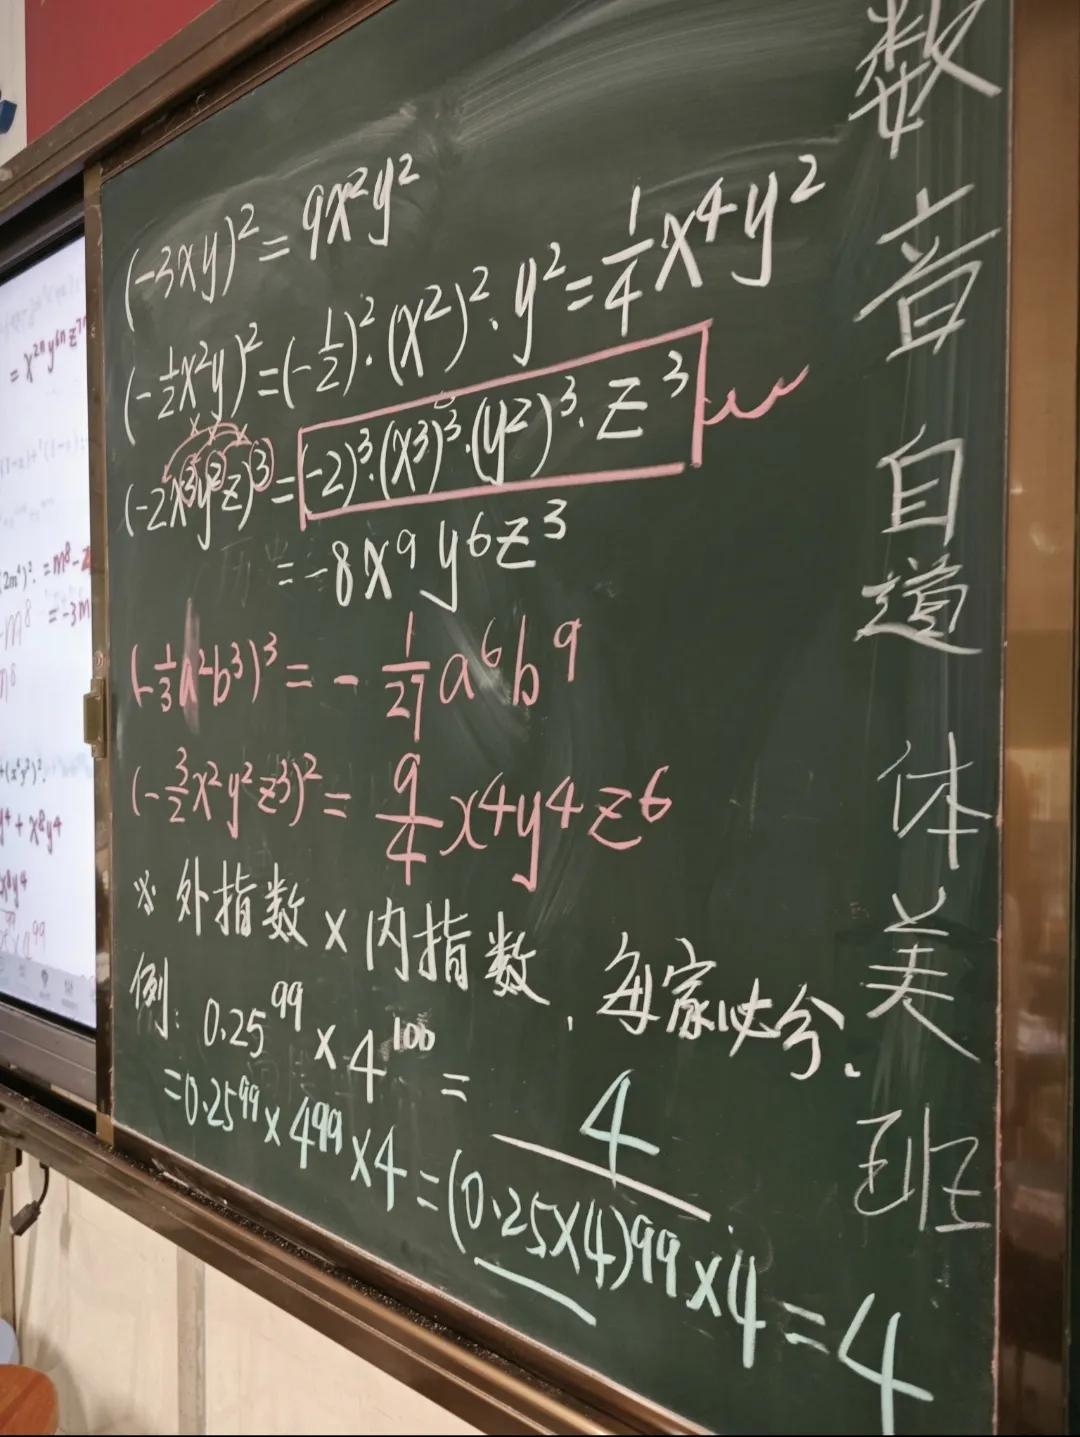 (-3xy)² = 9x²y²
(-1/2x²y)² = (-1/2)²·(x²)²·y² = 1/4x⁴y²
(-2x³y²z)³ = (-2)³·(x³)³·(y²)³·z³
= -8x⁹y⁶z³
(-1/3a²b³)³ = -1/27a⁶b⁹
(-3/2x²y²z³)² = 9/4x⁴y⁴z⁶
※ 外指数 × 内指数, 每家必分.
例: 0.25⁹⁹ × 4¹⁰⁰ = 4
= 0.25⁹⁹ × 4⁹⁹ × 4 = (0.25×4)⁹⁹ × 4 = 4
数
音
自
道
体
美
班
= x²ⁿy⁶ⁿz⁷ⁿ
(2m⁴)². = m⁸-
-m⁸ = -3m
y⁴ + x⁸y⁴
x⁸y⁴